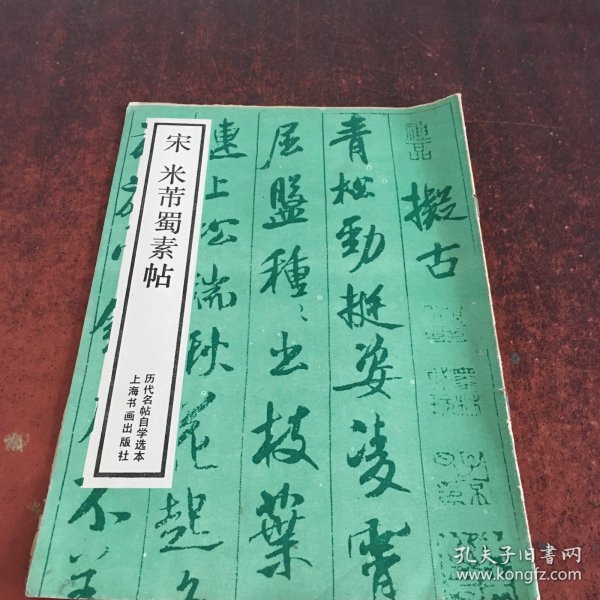 宋 米芾蜀素帖
历代名帖自学选本
上海书画出版社
擬古
青松勁挺姿凌霄
屈盤種〻出枝葉
連上松端秋花起
不羞
孔夫子旧书网
www.kongfz.com